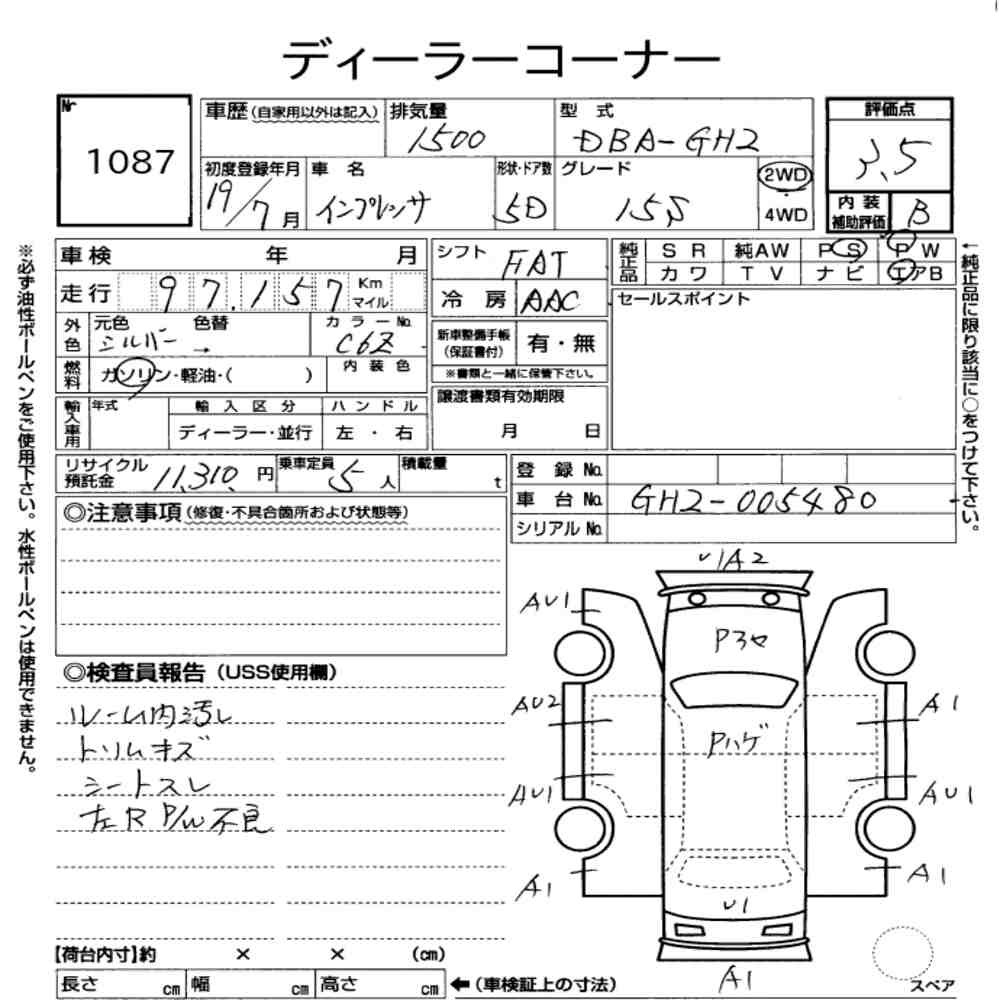 ディーラーコーナー
Nr
1087
車歴(自家用以外は記入) 排気量 1500 型式 DBA-GH2
初度登録年月 19/7月 車名 インプレッサ 形状・ドア数 5D グレード 15S 2WD 4WD
評価点
3.5
内装補助評価 B
車検 年 月
走行 97.157 Km マイル
外色 元色 シルバー 色替 → カラーNo. C6Z
燃料 ガソリン・軽油・( ) 内装色
輸入車用 年式 輸入区分 ハンドル
ディーラー・並行 左・右
シフト FAT
冷房 AAC
新車整備手帳(保証書付) 有・無
※書類と一緒に保管下さい。
譲渡書類有効期限
月 日
純正品 SR 純AW PS PW
カワ TV ナビ エアB
セールスポイント
リサイクル預託金 11,310 円 乗車定員 5人 積載量 t
登録No.
車台No. GH2-005480
シリアルNo.
◎注意事項(修復・不具合箇所および状態等)
◎検査員報告(USS使用欄)
ルーム内汚レ
トリムキズ
シートスレ
左R P/W不良
【荷台内寸】約 × × (cm)
長さ cm 幅 cm 高さ cm ←(車検証上の寸法)
※必ず油性ボールペンをご使用下さい。水性ボールペンは使用できません。
←純正品に限り該当に○をつけて下さい。
U1A2
AU1
P3セ
AU2
A1
Pハゲ
AU1
AU1
A1
A1
U1
A1
スペア